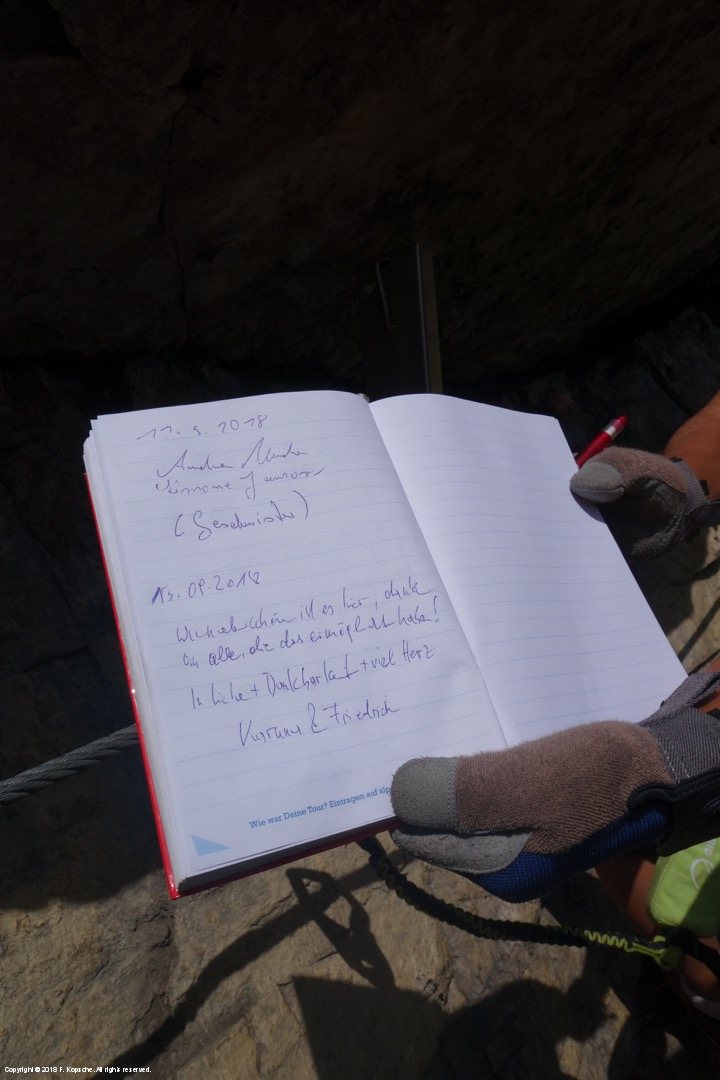 11. 9. 2018
(Geschwister)
13.09.2018
Wunderschön ist es hier, danke
an alle, die das ermöglicht haben!
In Liebe + Dankbarkeit + viel Herz
& Friedrich
Wie war Deine Tour? Eintragen auf alp
Copyright © 2018 F. Kopsche. All rights reserved.